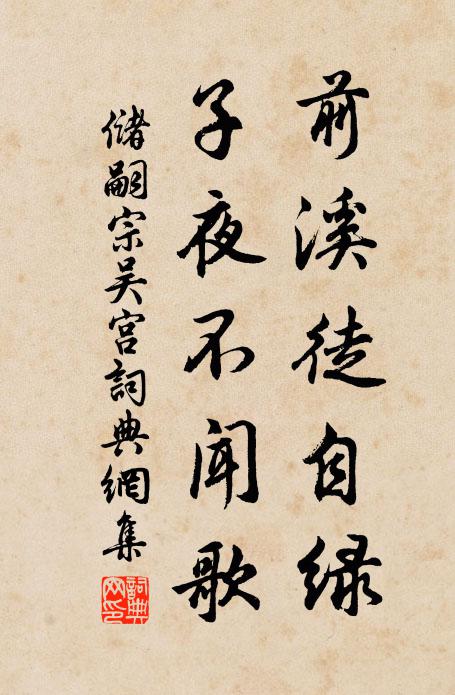 前溪徒自绿
子夜不闻歌
储嗣宗吴宫詞典網集
詞典
网印